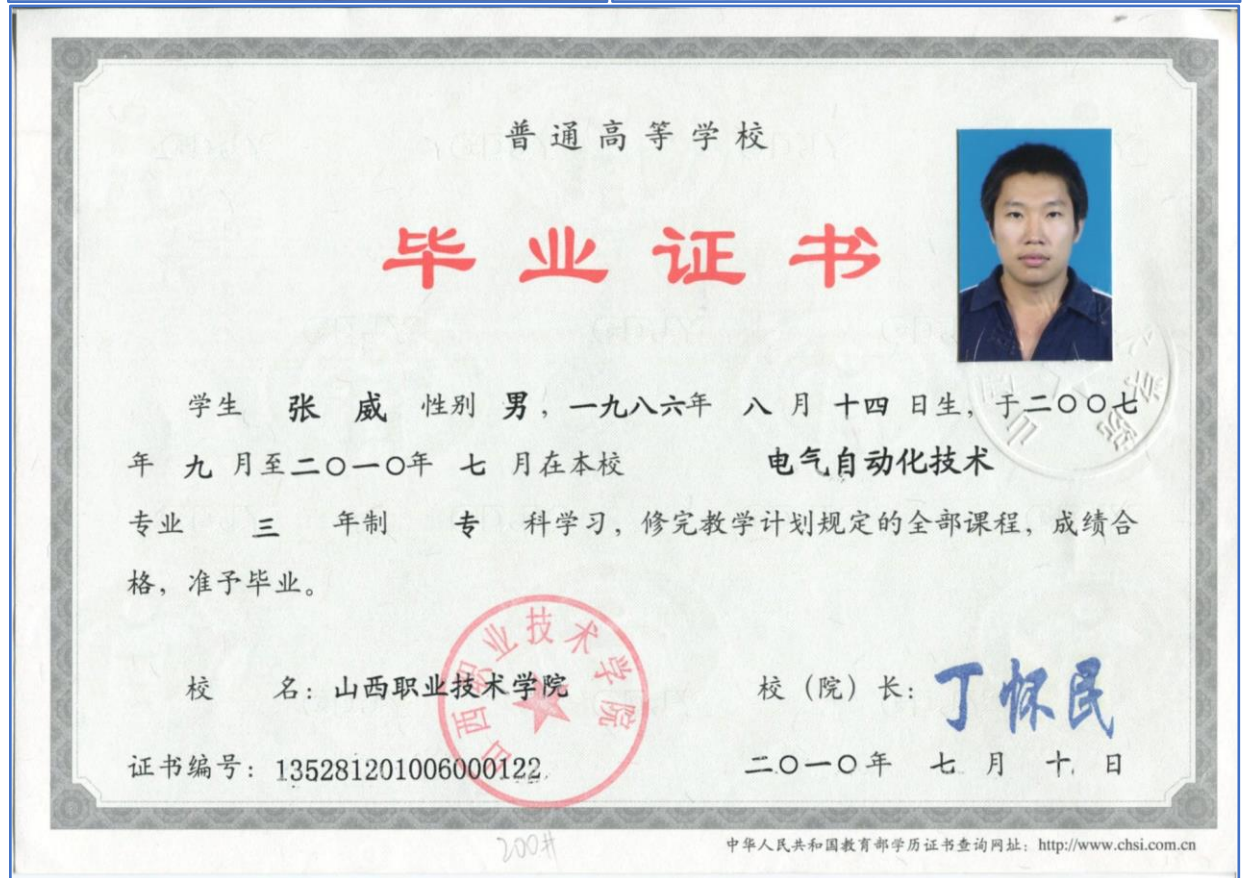 普通高等学校
毕业证书
学生 张 威 性别 男，一九八六年 八 月 十四 日生，于二〇〇七
年 九 月至二〇一〇年 七 月在本校 电气自动化技术
专业 三 年制 专 科学习，修完教学计划规定的全部课程，成绩合
格，准予毕业。
山西职业技术学院
校 名：山西职业技术学院 校（院）长：丁怀民
证书编号：135281201006000122 二〇一〇年 七 月 十 日
中华人民共和国教育部学历证书查询网址：http://www.chsi.com.cn